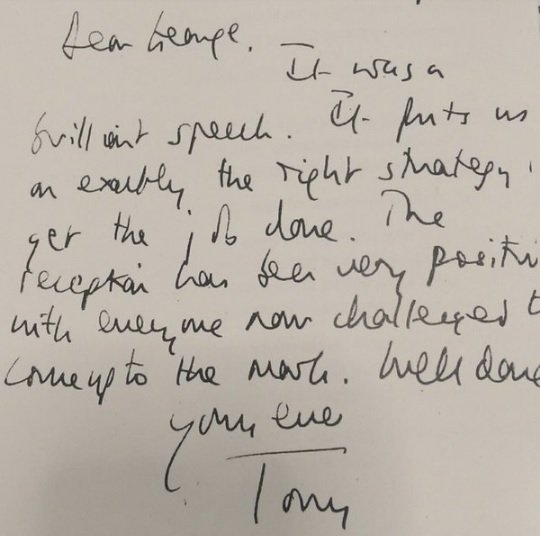 Dear George.
It was a
brilliant speech. It puts us
on exactly the right strategy
get the job done. The
reception has been very positiv
with everyone now challenged t
come up to the mark. Well done
Yours ever
Tony